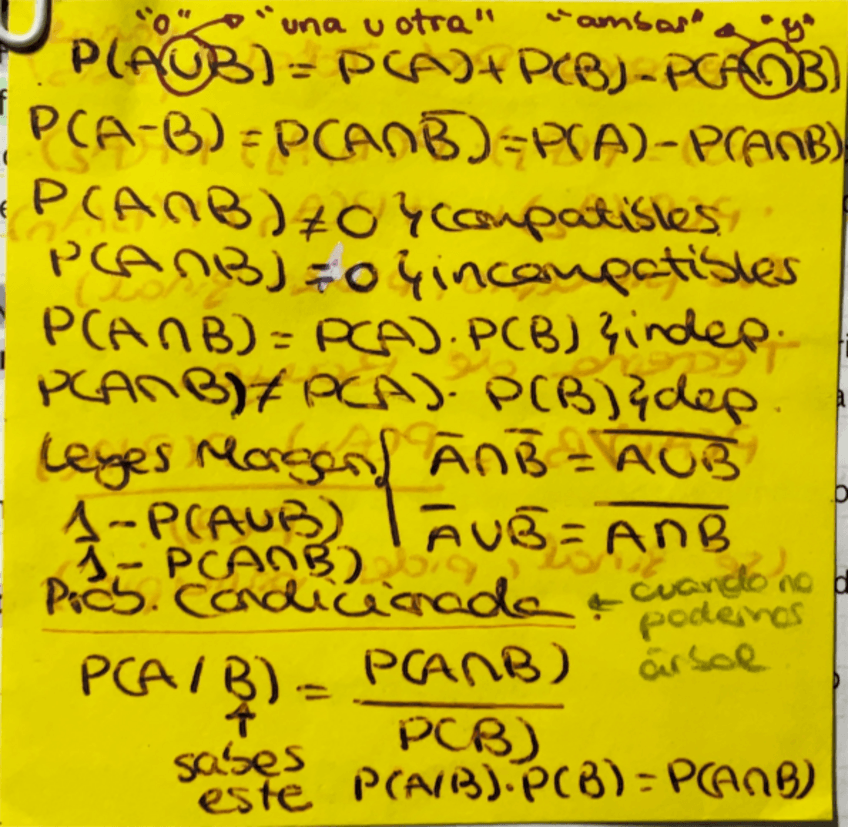 "o" → "una u otra" "ambas" ← "y"
P(A∪B) = P(A) + P(B) - P(A∩B)
P(A-B) = P(A∩B̅) = P(A) - P(A∩B)
P(A∩B) ≠ 0 } compatibles
P(A∩B) = 0 } incompatibles
P(A∩B) = P(A) · P(B) } indep.
P(A∩B) ≠ P(A) · P(B) } dep.
Leyes Morgan A̅∩B̅ = A̅∪̅B̅
1 - P(A∪B) A̅∪B̅ = A̅∩̅B̅
1 - P(A∩B)
Prob. Condicionada ← cuando no
podemos
árbol
P(A/B) = P(A∩B)
P(B)
↑
sabes
este
P(A/B) · P(B) = P(A∩B)